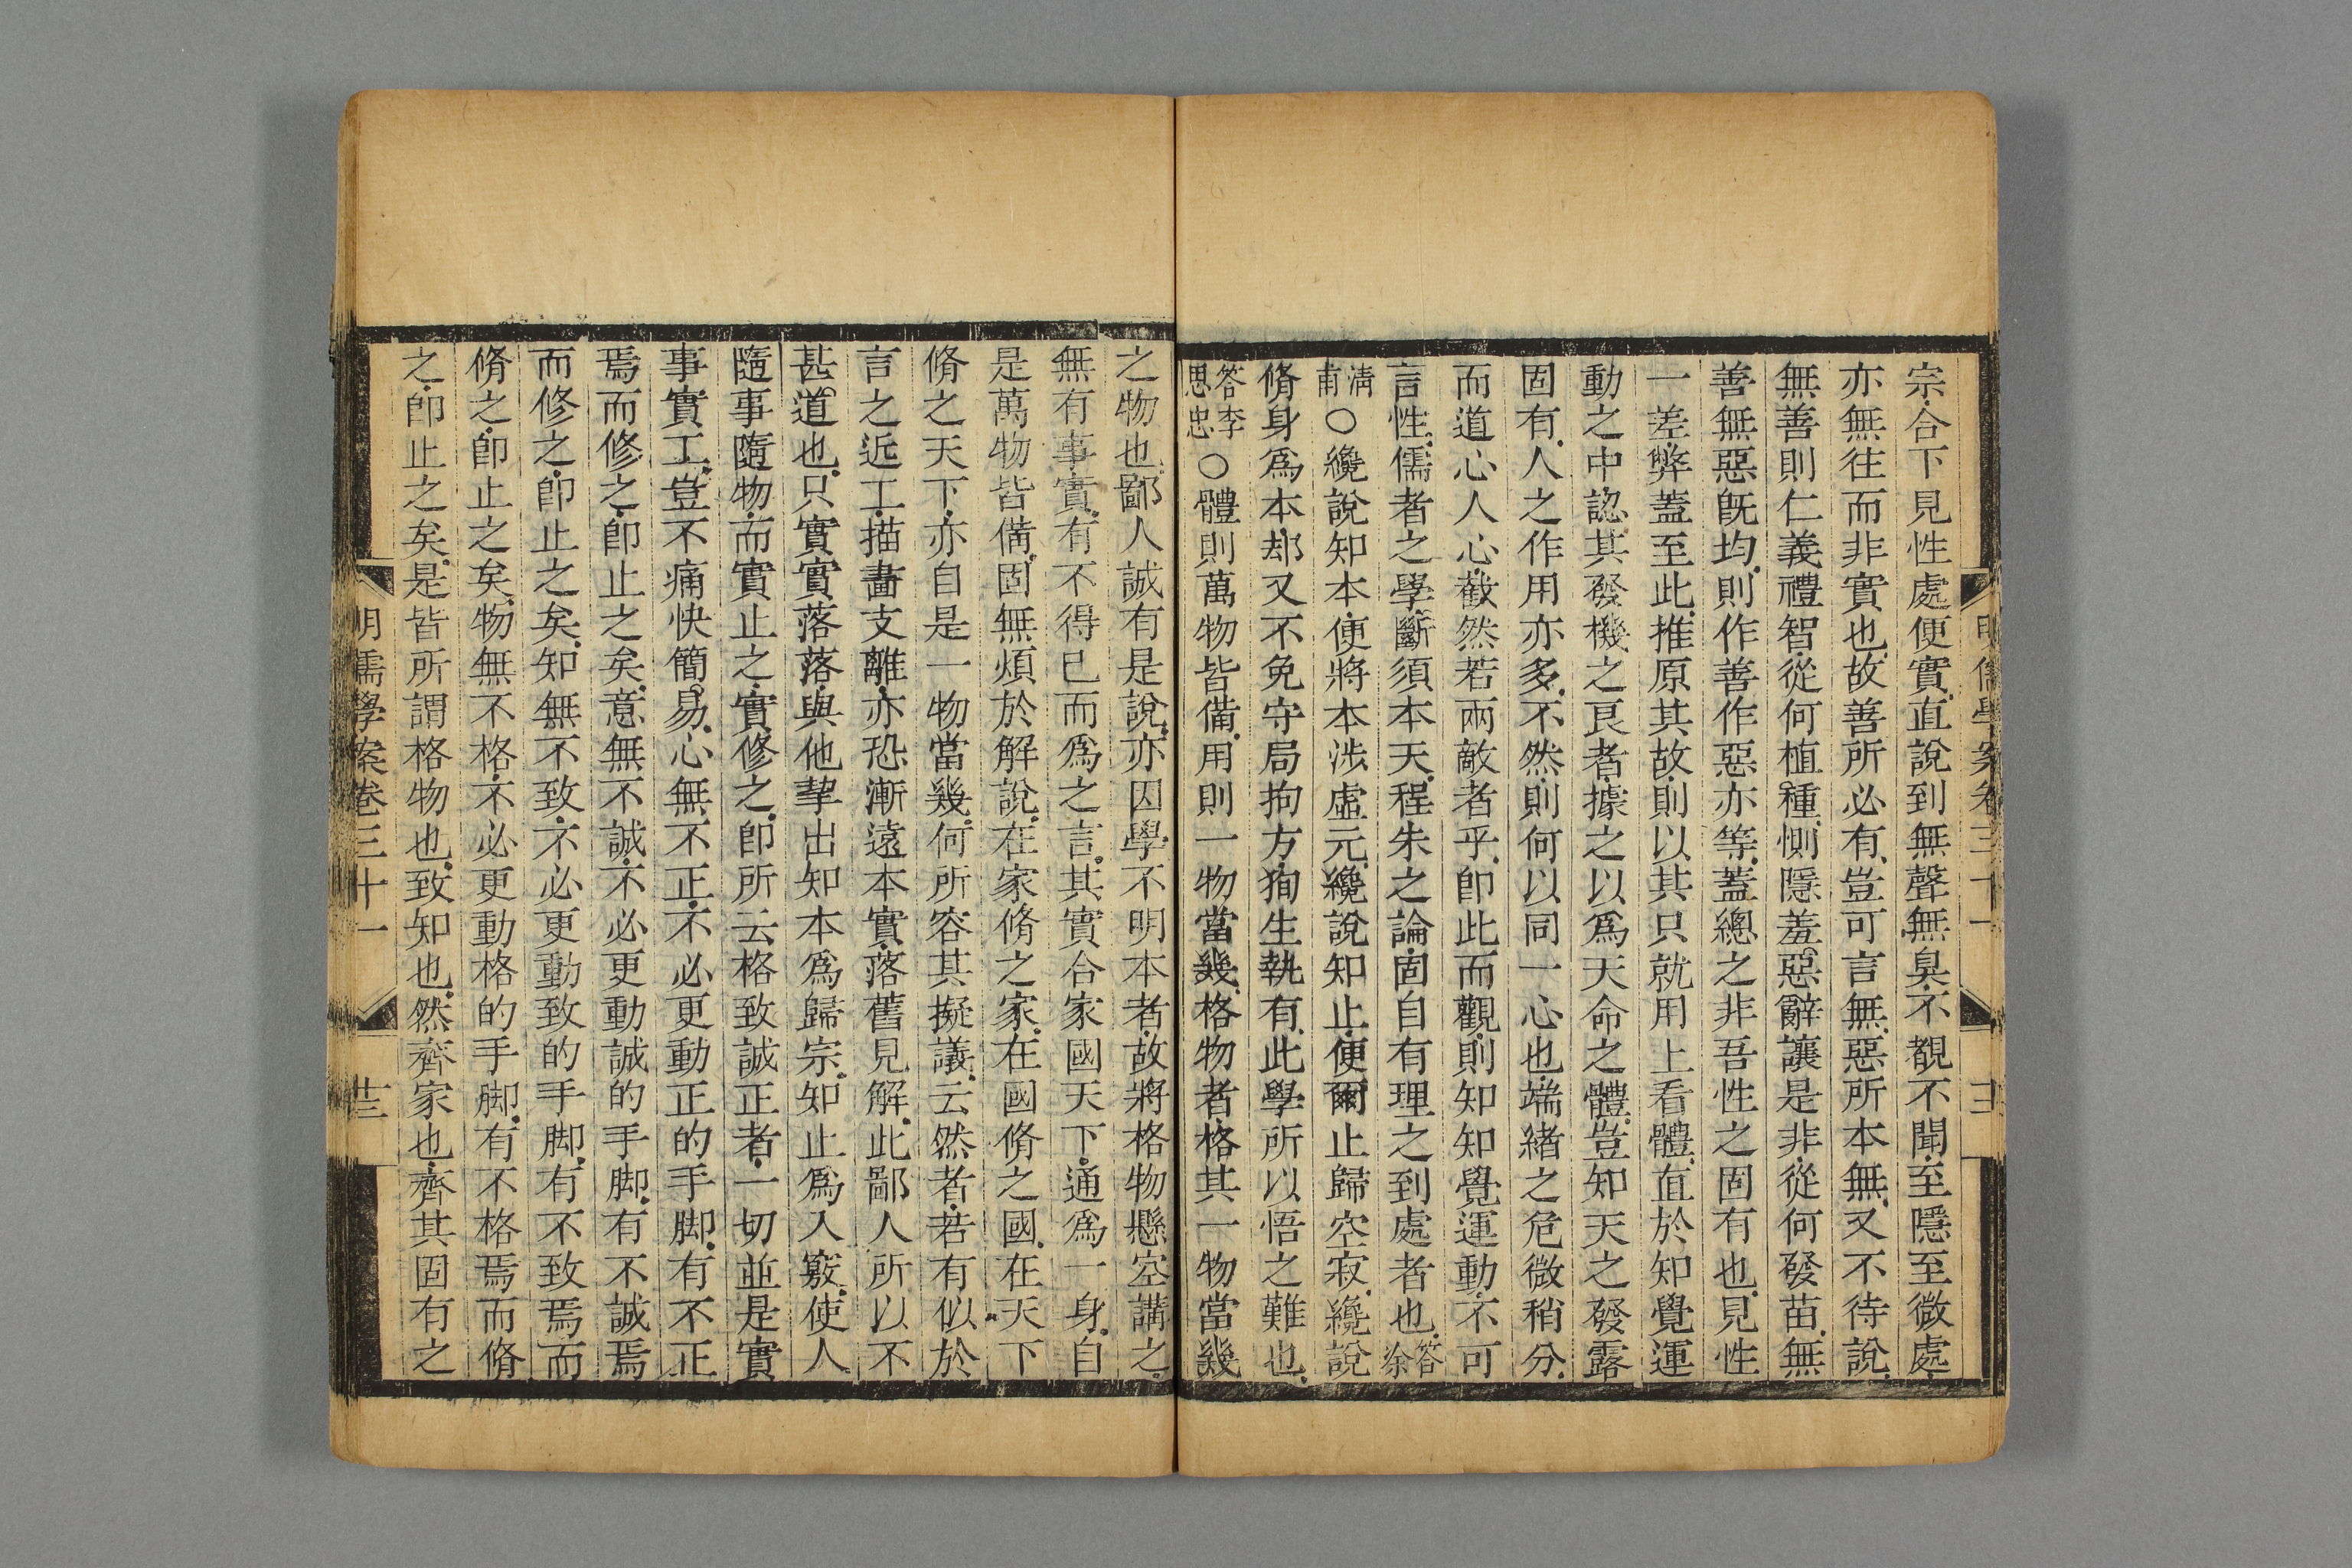 宗合下見性處便實直說到無聲無臭不覩不聞至隱至微處
亦無往而非實也故善所必有豈可言無惡所本無又不待說
無善則仁義禮智從何植種惻隱羞惡辭讓是非從何發苗無
善無惡旣均則作善作惡亦等蓋總之非吾性之固有也見性
一差弊蓋至此推原其故則以其只就用上看體直於知覺運
動之中認其發機之良者據之以爲天命之體豈知天之發露
固有人之作用亦多不然則何以同一心也端緒之危微稍分
而道心人心截然若兩敵者乎卽此而觀則知知覺運動不可
言性儒者之學斷須本天程朱之論固自有理之到處者也答徐
清甫○纔說知本便將本涉虛元纔說知止便爾止歸空寂纔說
脩身爲本却又不免守局拘方狥生執有此學所以悟之難也
答李思忠○體則萬物皆備用則一物當幾格物者格其一物當幾
之物也鄙人誠有是說亦因學不明本者故將格物懸空講之
無有事實有不得已而爲之言其實合家國天下通爲一身自
是萬物皆備固無煩於解說在家脩之家在國脩之國在天下
脩之天下亦自是一物當幾何所容其擬議云然者若有似於
言之近工描畵支離亦恐漸遠本實落舊見解此鄙人所以不
甚道也只實實落落與他挈出知本爲歸宗知止爲入竅使人
隨事隨物而實止之實修之卽所云格致誠正者一切並是實
事實工豈不痛快簡易心無不正不必更動正的手脚有不正
焉而修之卽止之矣意無不誠不必更動誠的手脚有不誠焉
而修之卽止之矣知無不致不必更動致的手脚有不致焉而
脩之卽止之矣物無不格不必更動格的手脚有不格焉而脩
之卽止之矣是皆所謂格物也致知也然齊家也齊其固有之
明儒學案卷三十一